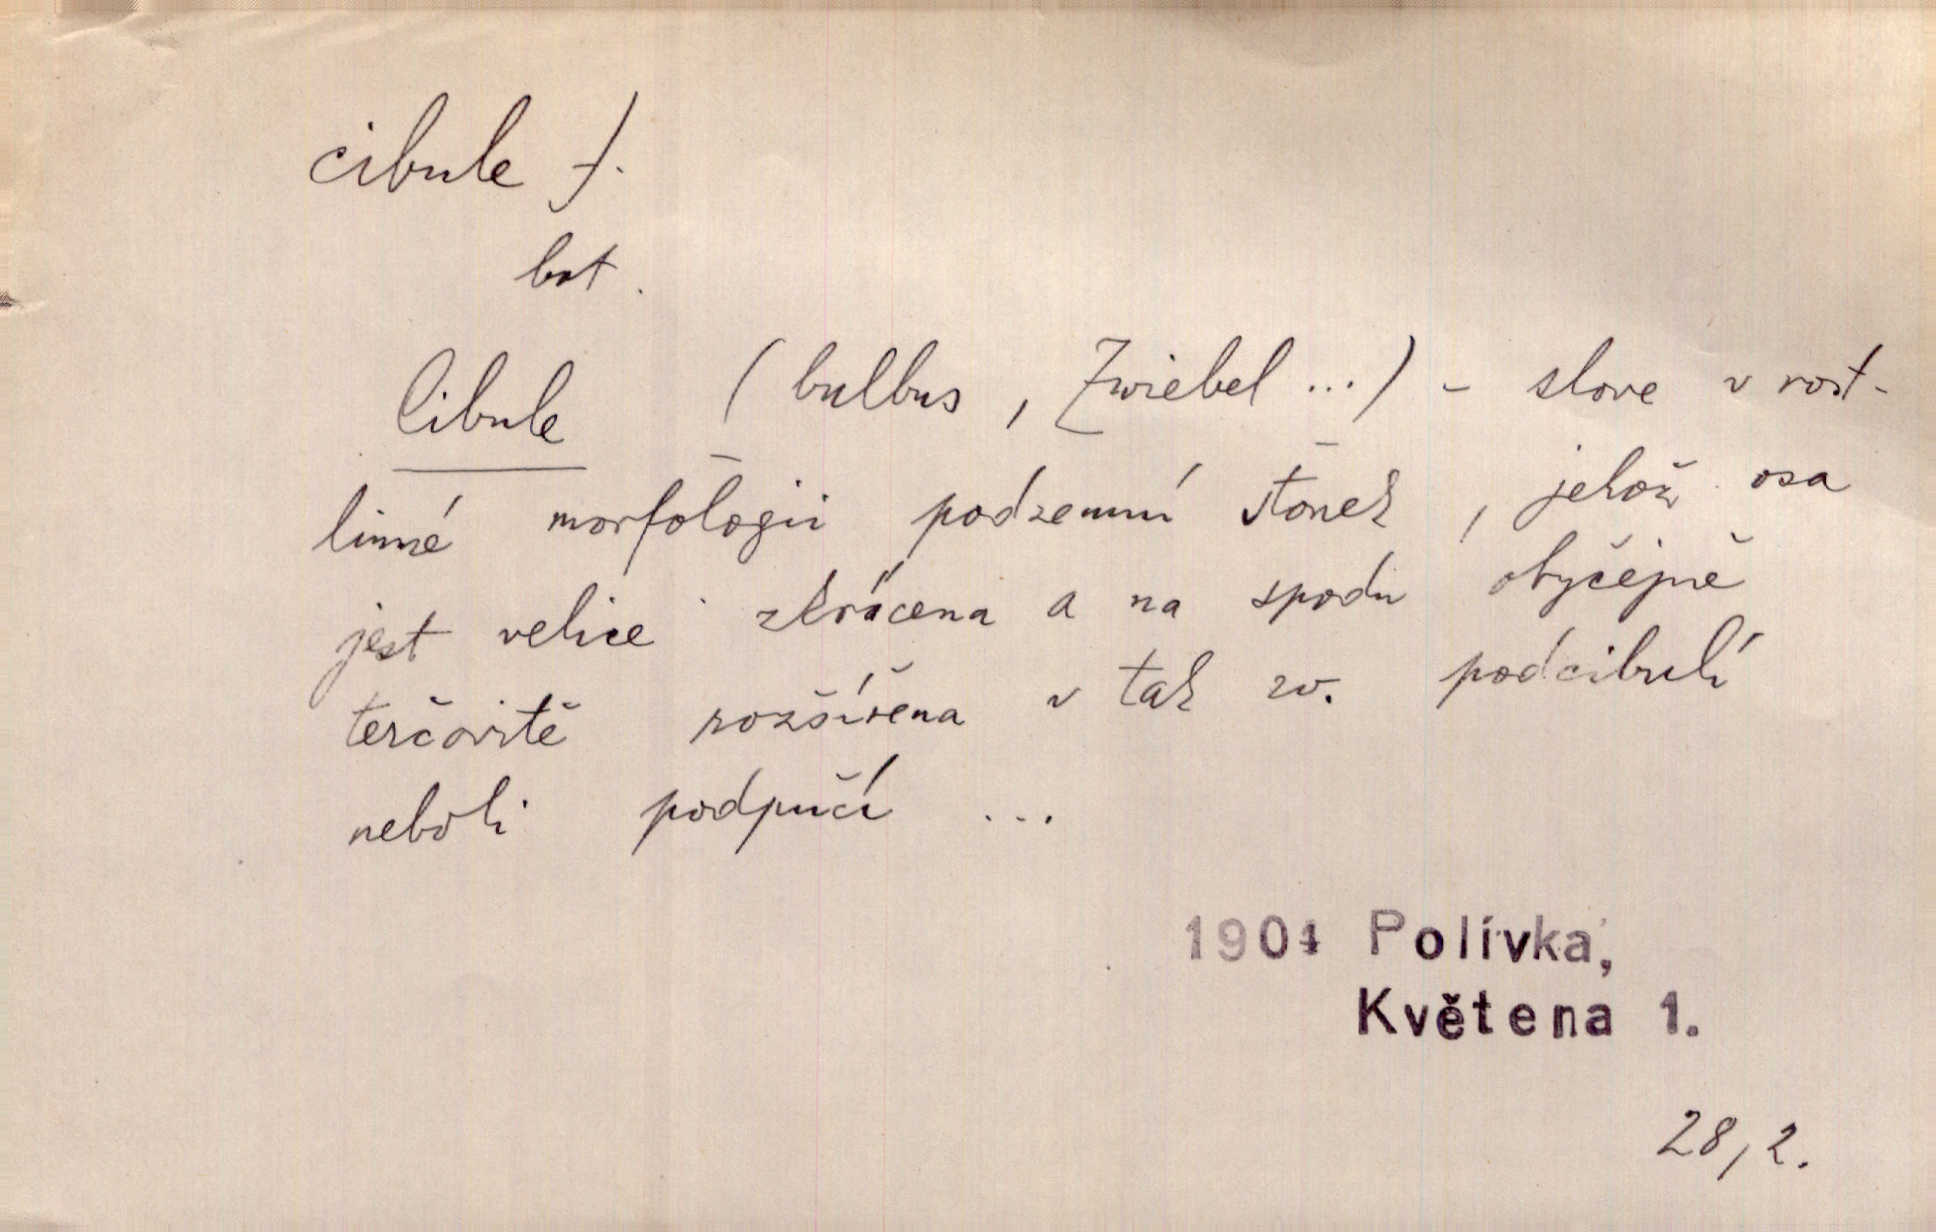 cibule f.
bot.
Cibule (bulbus, Zwiebel ...) - slove v rost-
linné morfologii podzemní stonek, jehož osa
jest velice zkrácena a na spodu obyčejně
terčovitě rozšířena v tak zv. podcibulí
neboli podpučí ...
1901 Polívka,
Květena 1.
28, 2.